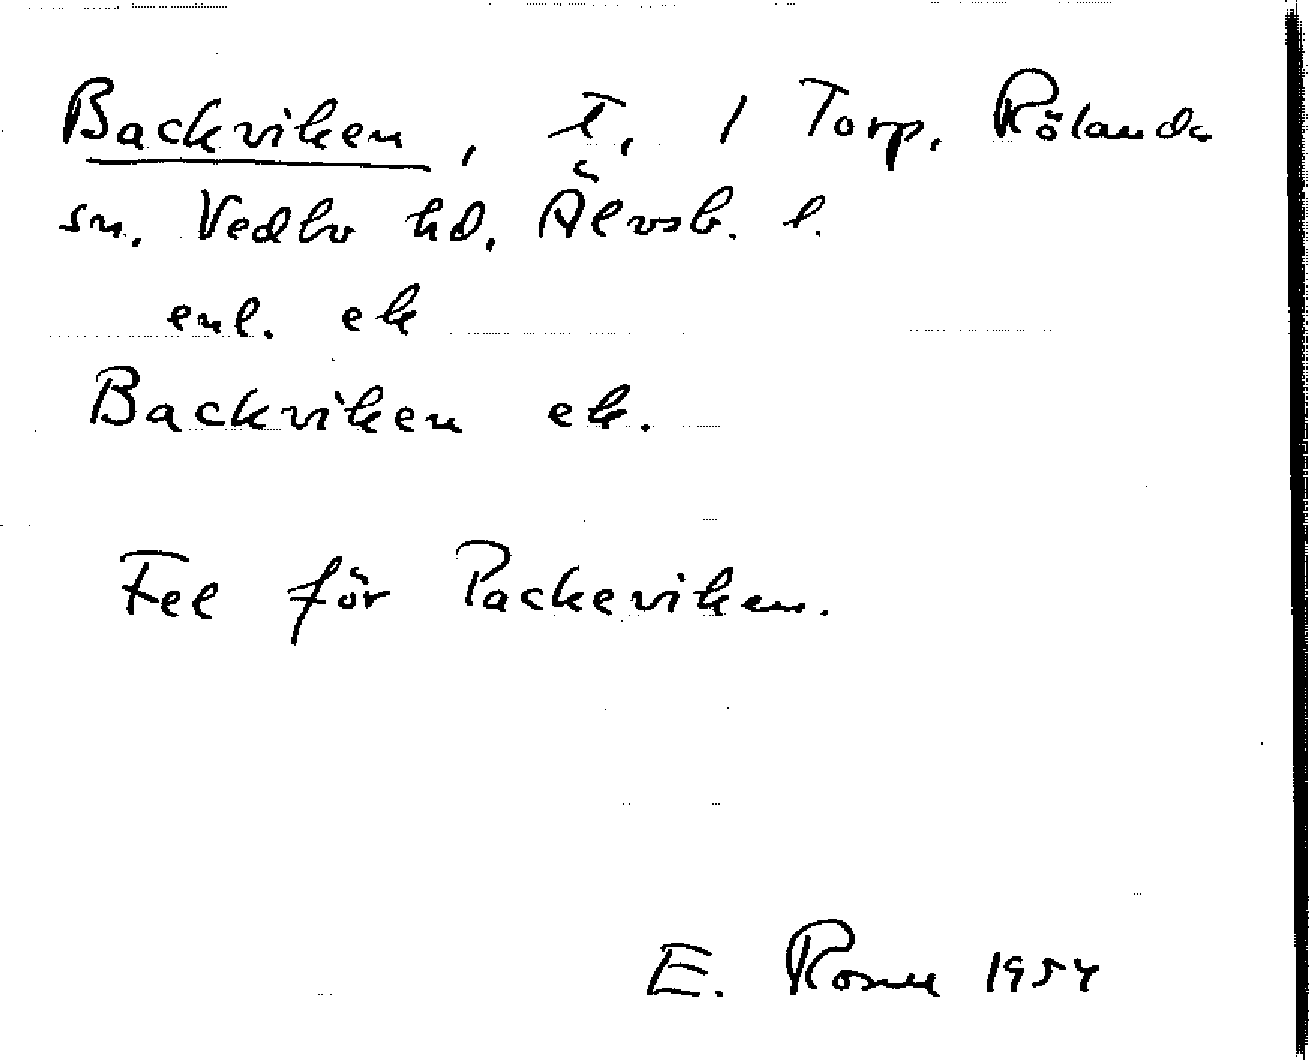 Backviken, t. / Torp. Rölanda
sn. Vedbo hd. Älvsb. l.
enl. ek
Backviken ek.
Fel för Packeviken.
E. Rosell 1954